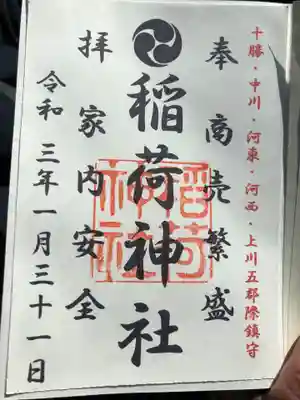 十勝・中川・河東・河西・上川五郡際鎮守
奉 商売繁盛
稲荷神社
稲荷神社
拝 家内安全
令和三年一月三十一日